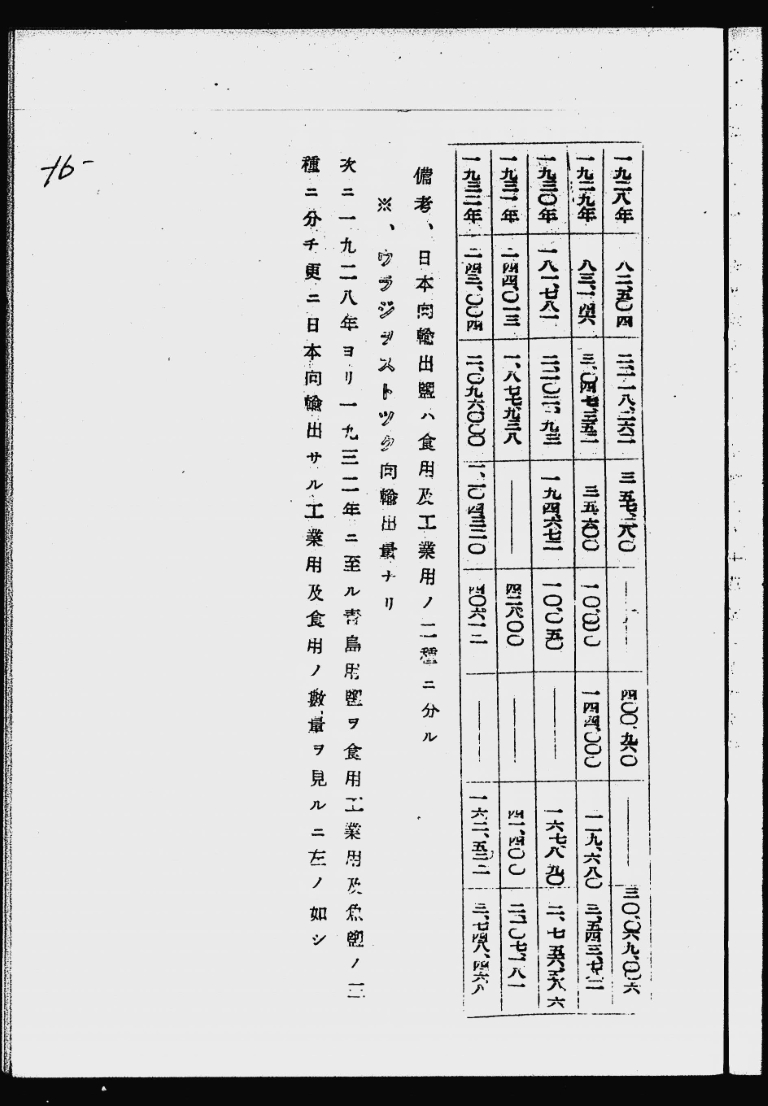 一九二八年 八二、五〇四 二、二一八、二六二 三五七、二八〇 ― 四〇〇、九六〇 ―
一九二九年 八三、一四六 三、〇四七、三五二 三五、六〇〇 一〇、〇〇〇 一四四、〇〇〇 一一九、六八〇 三、五四三、七二二
一九三〇年 一八一、七八一 一九四、六七二 一〇、〇五〇 ― 一六七、八九〇
一九三一年 二四四、〇一三 一、八七七、九三八 ― 四二、八〇〇 ― 四一、四〇〇 二、二〇七、一八一
一九三二年 二四三、〇〇四 二、〇九六、〇〇〇 四〇、六一二 ― 一六二、五三二 三、七四八、四六八
備考、日本向輸出鹽ハ食用及工業用ノ二種ニ分ル
※、ウラジヲストツク向輸出量ナリ
次ニ一九二八年ヨリ一九三二年ニ至ル青島用鹽ヲ食用工業用及魚鹽ノ三
種ニ分チ更ニ日本向輸出サル工業用及食用ノ數量ヲ見ルニ左ノ如シ
-16-